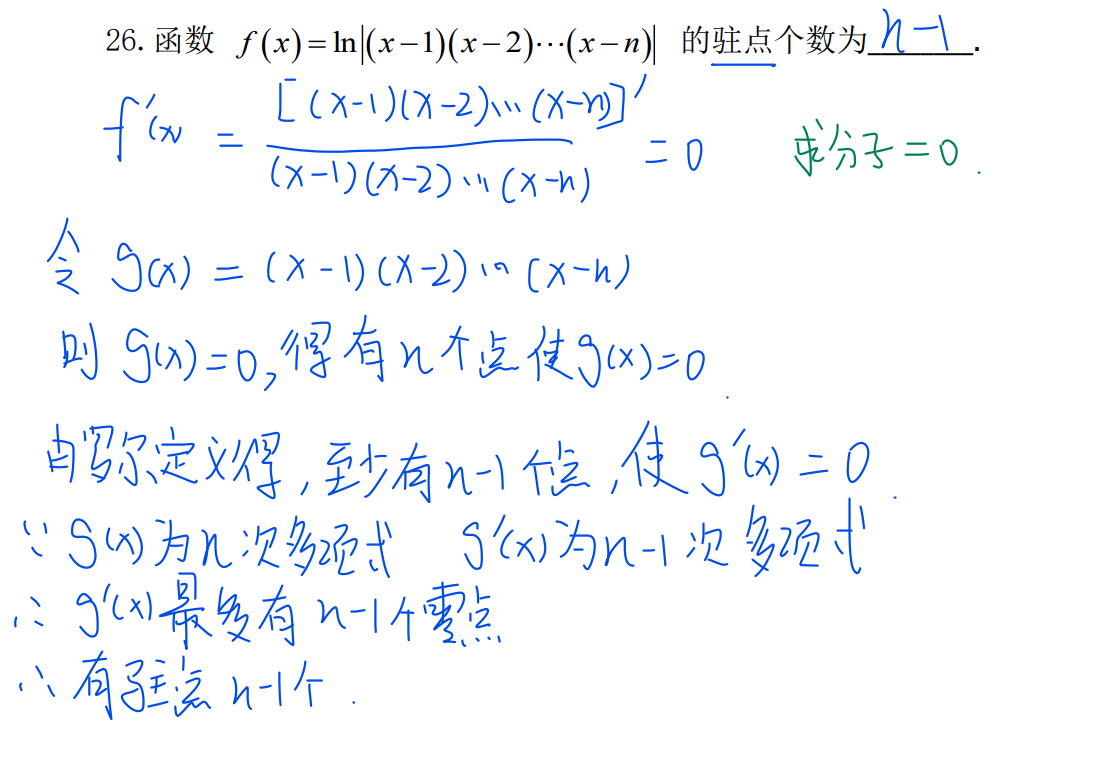 26. 函数 f(x)=ln|(x-1)(x-2)⋯(x-n)| 的驻点个数为 n-1 .
f'(x) = [(x-1)(x-2)⋯(x-n)]' / (x-1)(x-2)⋯(x-n) = 0 求分子=0.
令 g(x) = (x-1)(x-2)⋯(x-n)
则 g(x)=0, 得有n个点使g(x)=0.
由罗尔定义得, 至少有n-1个点, 使g'(x)=0.
∵ g(x)为n次多项式 g'(x)为n-1次多项式
∴ g'(x)最多有n-1个零点
∴ 有驻点n-1个.